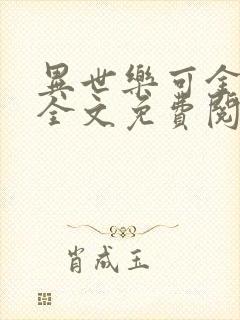 異世樂可全
全文免費閱
肖成玉